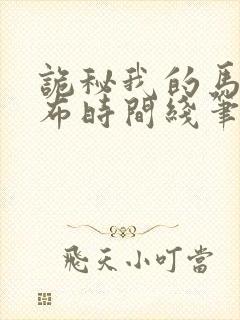 詭秘我的馬
布時間綫筆
飛天小叮當